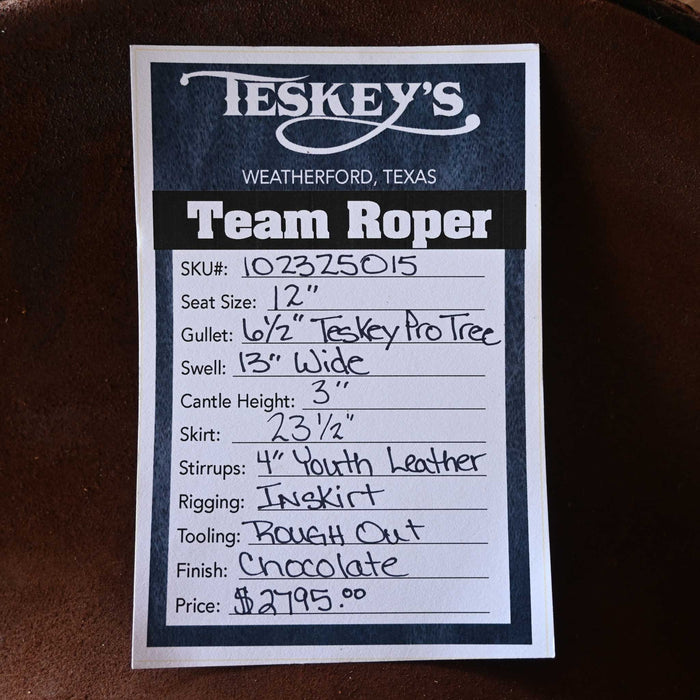 TESKEY'S
WEATHERFORD, TEXAS
Team Roper
SKU#: 102325015
Seat Size: 12"
Gullet: 6½" Teskey Pro Tree
Swell: 13" Wide
Cantle Height: 3"
Skirt: 23½"
Stirrups: 4" Youth Leather
Rigging: Inskirt
Tooling: Rough Out
Finish: Chocolate
Price: $2795.00